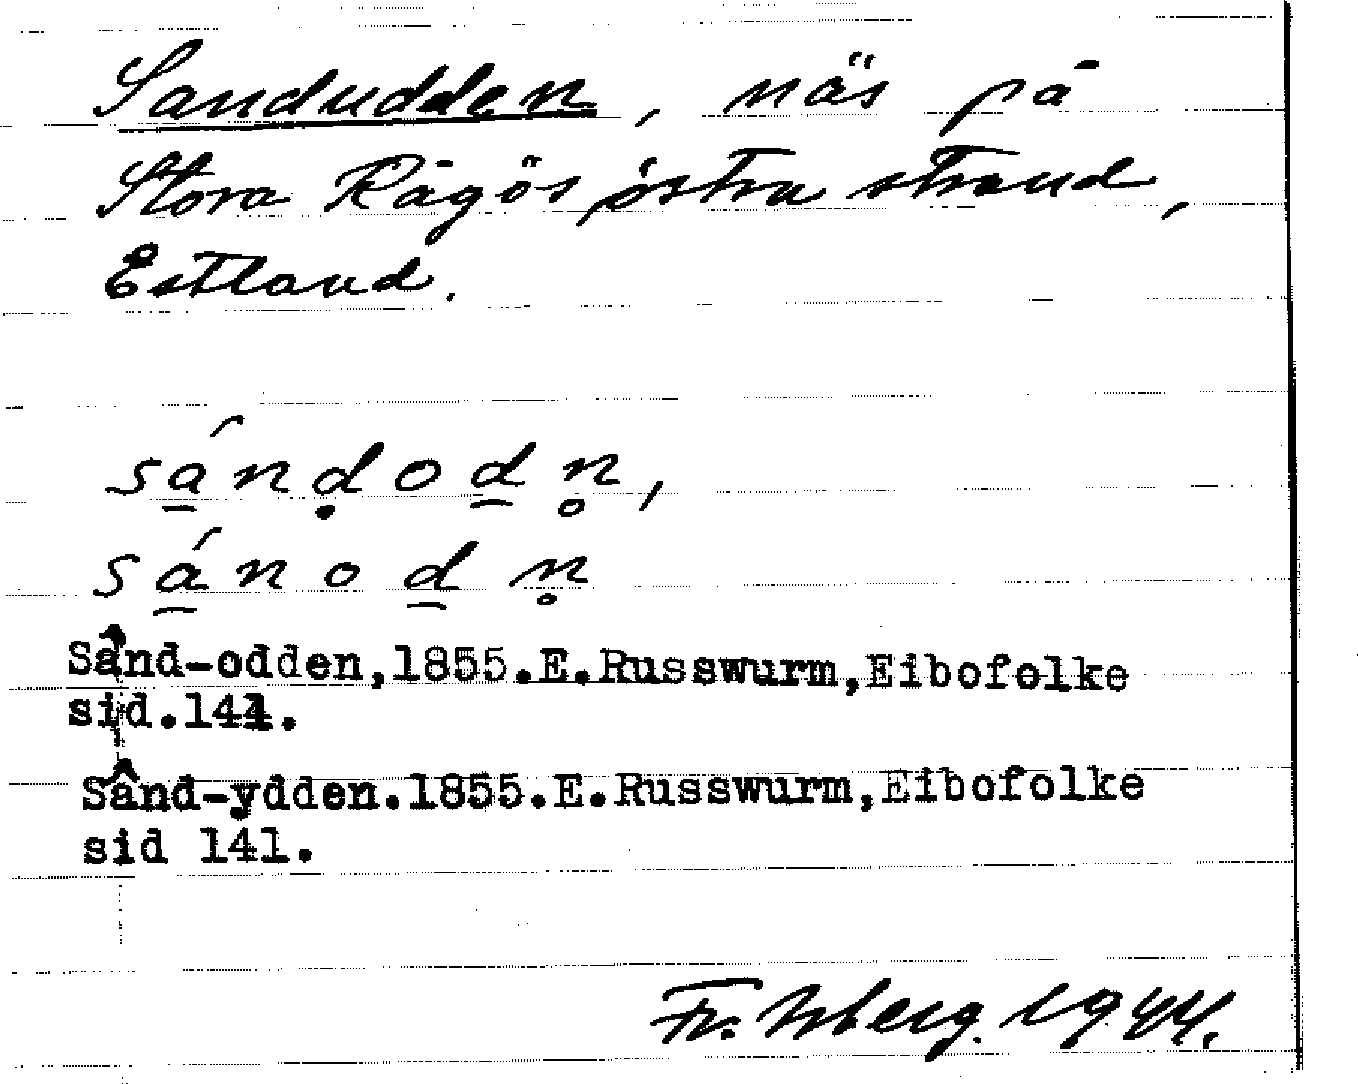 Sandudden, näs på
Stora Rågös östra strand,
Estland.
sá̱nḍoḏn̥,
sá̱noḏn̥
Sând-odden,1855.E.Russwurm,Eibofolke
sid.141.
Sând-ydden.1855.E.Russwurm,Eibofolke
sid 141.
Fr. Isberg. 1944.